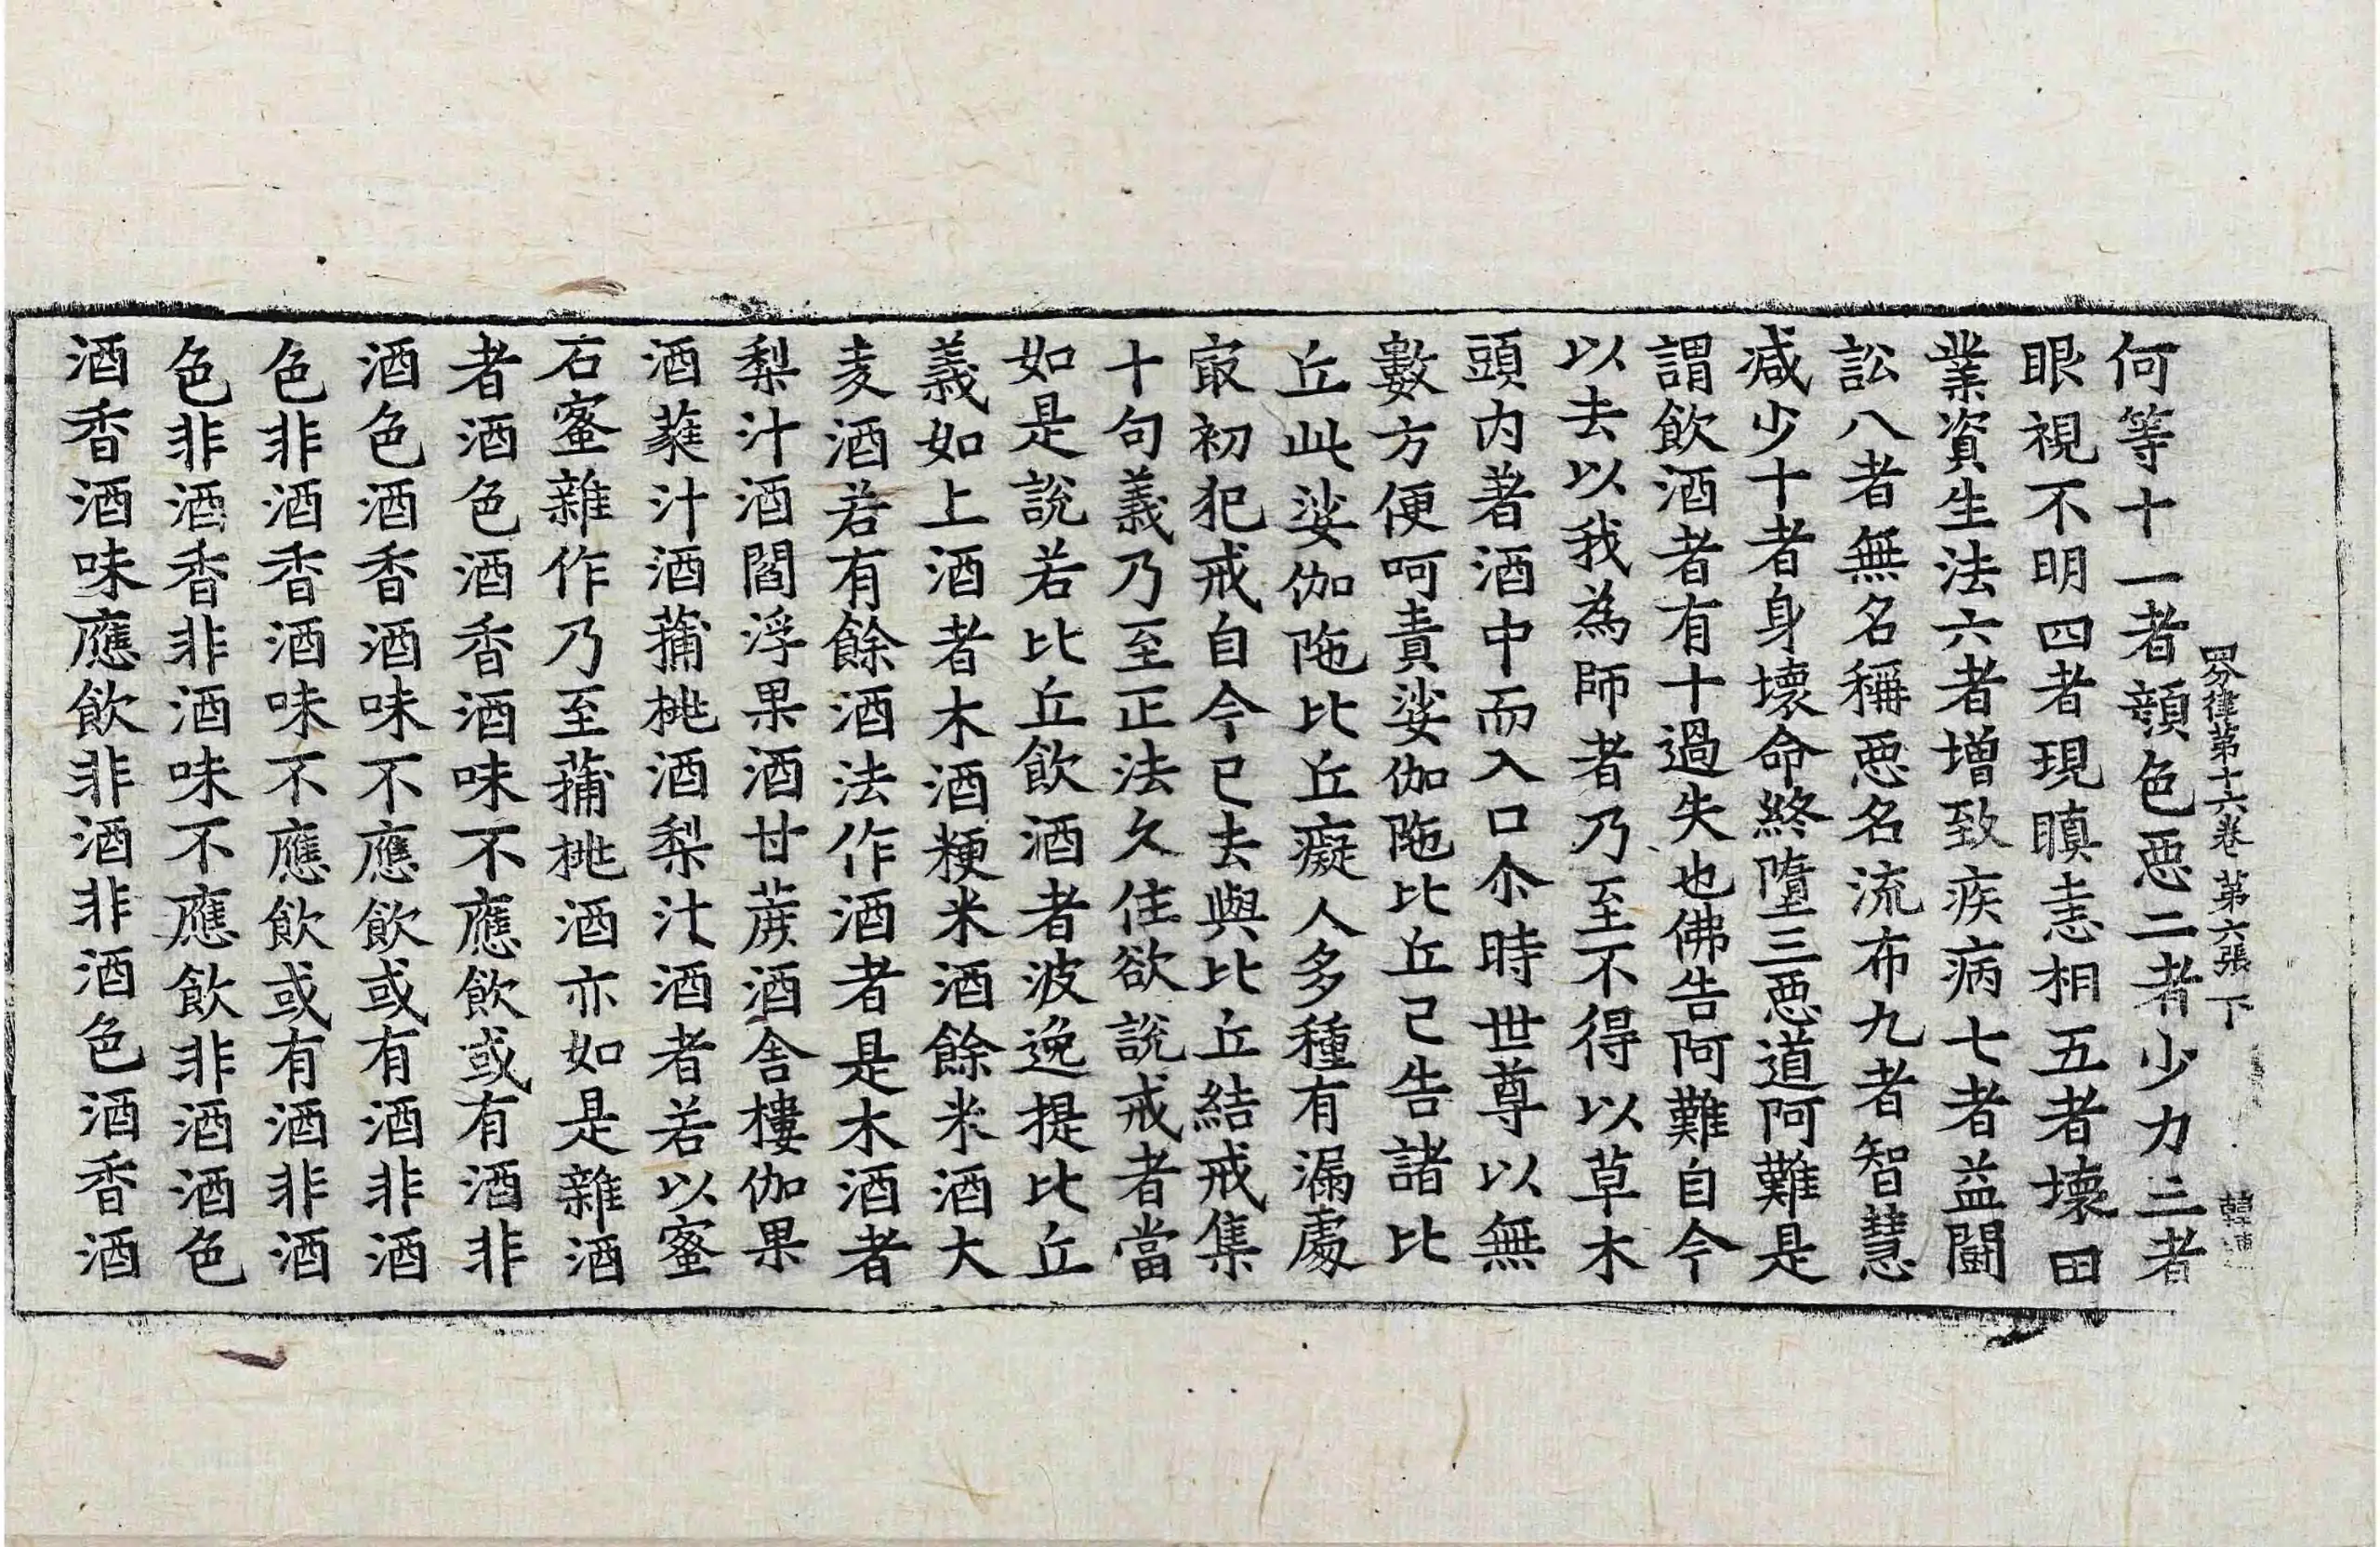 四分律第十六卷 第六張 下
何等十一者顔色惡二者少力三者
眼視不明四者現瞋恚相五者壞田
業資生法六者增致疾病七者益鬪
訟八者無名稱惡名流布九者智慧
减少十者身壞命終墮三惡道阿難是
謂飮酒者有十過失也佛告阿難自今
以去以我為師者乃至不得以草木
頭内著酒中而入口尒時世尊以無
數方便呵責娑伽陁比丘已告諸比
丘此娑伽陁比丘癡人多種有漏處
㝡初犯戒自今已去與比丘結戒集
十句義乃至正法久住欲說戒者當
如是說若比丘飮酒者波逸提比丘
義如上酒者木酒粳米酒餘米酒大
麦酒若有餘酒法作酒者是木酒者
梨汁酒閻浮果酒甘蔗酒舍樓伽果
酒蕤汁酒蒱桃酒梨汁酒者若以蜜
石蜜雜作乃至蒱桃酒亦如是雜酒
者酒色酒香酒味不應飮或有酒非
酒色酒香酒味不應飮或有酒非酒
色非酒香酒味不應飮或有酒非酒
色非酒香非酒味不應飮非酒酒色
酒香酒味應飮非酒非酒色酒香酒